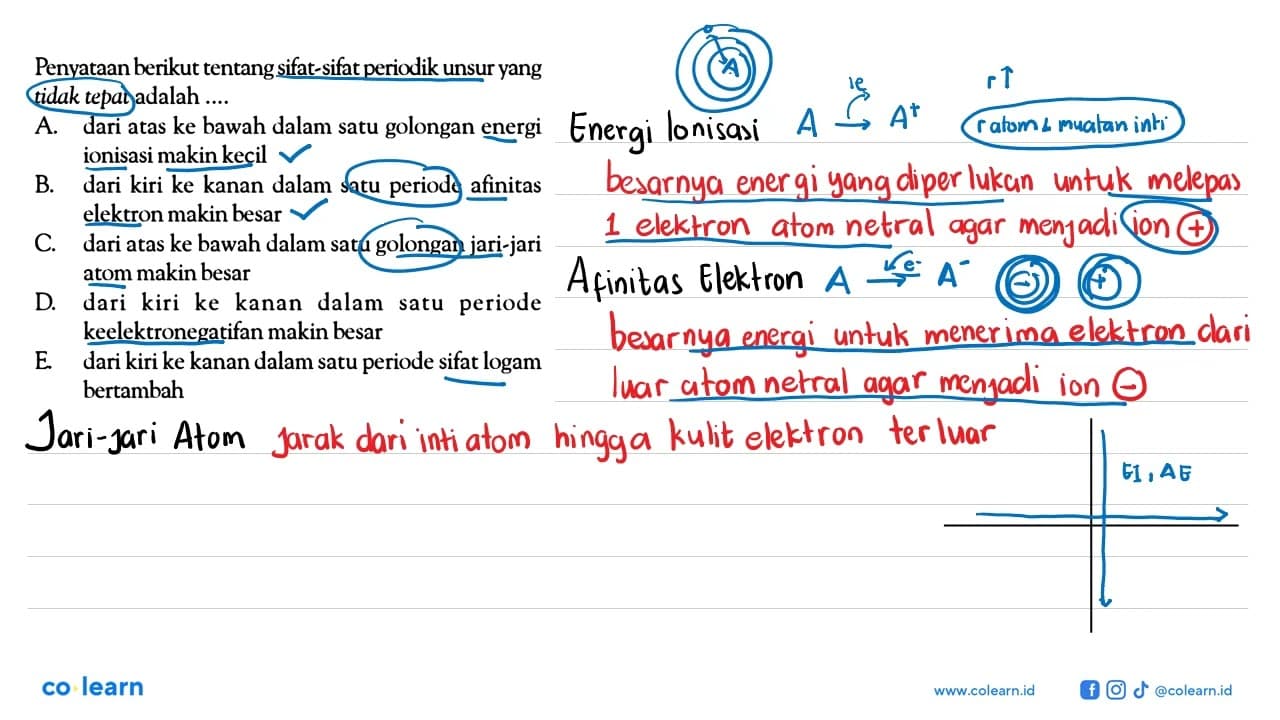 Penyataan berikut tentang sifat-sifat periodik unsur yang
tidak tepat adalah ....
A. dari atas ke bawah dalam satu golongan energi
ionisasi makin kecil
B. dari kiri ke kanan dalam satu periode afinitas
elektron makin besar
C. dari atas ke bawah dalam satu golongan jari-jari
atom makin besar
D. dari kiri ke kanan dalam satu periode
keelektronegatifan makin besar
E. dari kiri ke kanan dalam satu periode sifat logam
bertambah
A
Energi Ionisasi A → A⁺
1e
r↑
r atom & muatan inti
besarnya energi yang diperlukan untuk melepas
1 elektron atom netral agar menjadi ion +
Afinitas Elektron A → A⁻
e⁻
- +
besarnya energi untuk menerima elektron dari
luar atom netral agar menjadi ion -
Jari-jari Atom jarak dari inti atom hingga kulit elektron terluar
EI, AE
co learn
www.colearn.id
@colearn.id